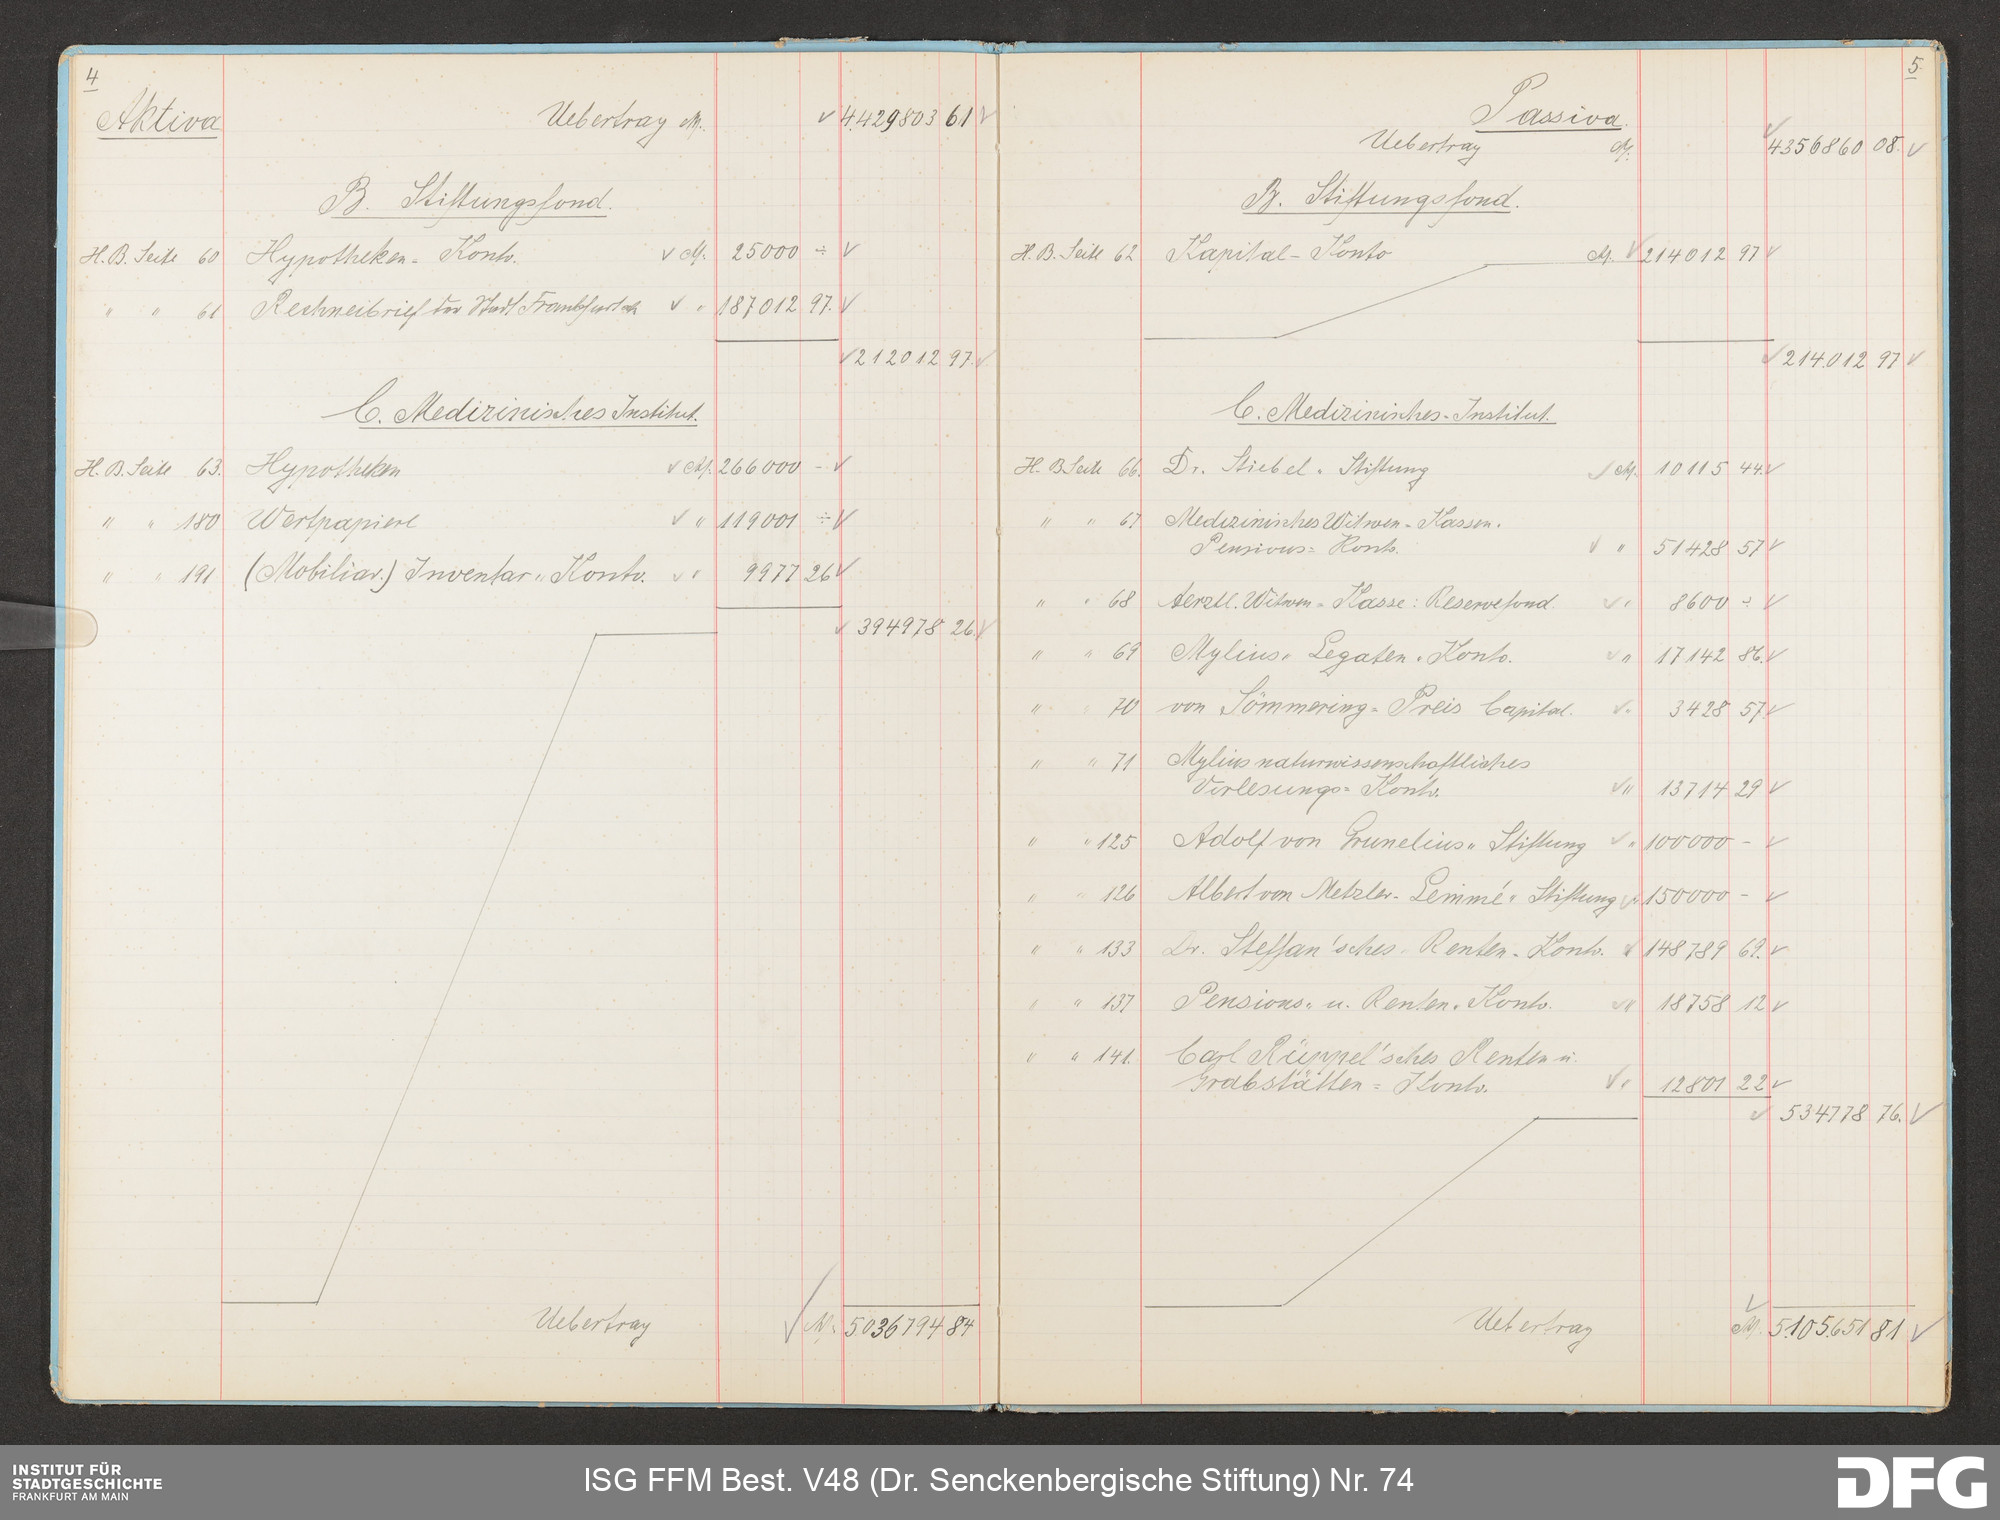 4
Aktiva
Uebertrag M. 4.429803 61
B. Stiftungsfond.
H.B. Seite 60 Hypotheken-Konto. M. 25000 ÷
" " 61 Rechneibrief der Stadt Frankfurt a/M " 187012 97.
212012 97.
C. Medizinisches Institut.
H.B. Seite 63. Hypotheken M. 266000 -
" " 180 Wertpapiere " 119001 ÷
" " 191 (Mobiliar.) Inventar-Konto. " 9977 26
394978 26.
Uebertrag M. 5036794 84
5.
Passiva.
Uebertrag M. 4356860 08.
B. Stiftungsfond.
H.B. Seite 62 Kapital-Konto M. 214012 97
214.012 97
C. Medizinisches-Institut.
H.B. Seite 66. Dr. Stiebel-Stiftung M. 10115 44.
" " 67 Medizinisches Witwen-Kassen-
Pensions-Konto. " 51428 57
" " 68 Aerztl. Witwen-Kasse: Reservefond. " 8600 ÷
" " 69 Mylius-Legaten-Konto. " 17142 86.
" " 70 von Sömmering-Preis Capital. " 3428 57
" " 71 Mylius naturwissenschaftliches
Vorlesungs-Konto. " 13714 29
" " 125 Adolf von Grunelius-Stiftung " 100000 -
" " 126 Albert von Metzler-Lemmé-Stiftung " 150000 -
" " 133 Dr. Steffan'sches-Renten-Konto. " 148789 69.
" " 137 Pensions- u. Renten-Konto. " 18758 12
" " 141. Carl Rüppel'sches Renten u.
Grabstätten-Konto. " 12801 22
534778 76.
Uebertrag M. 5.105.651 81
INSTITUT FÜR
STADTGESCHICHTE
FRANKFURT AM MAIN
ISG FFM Best. V48 (Dr. Senckenbergische Stiftung) Nr. 74
DFG